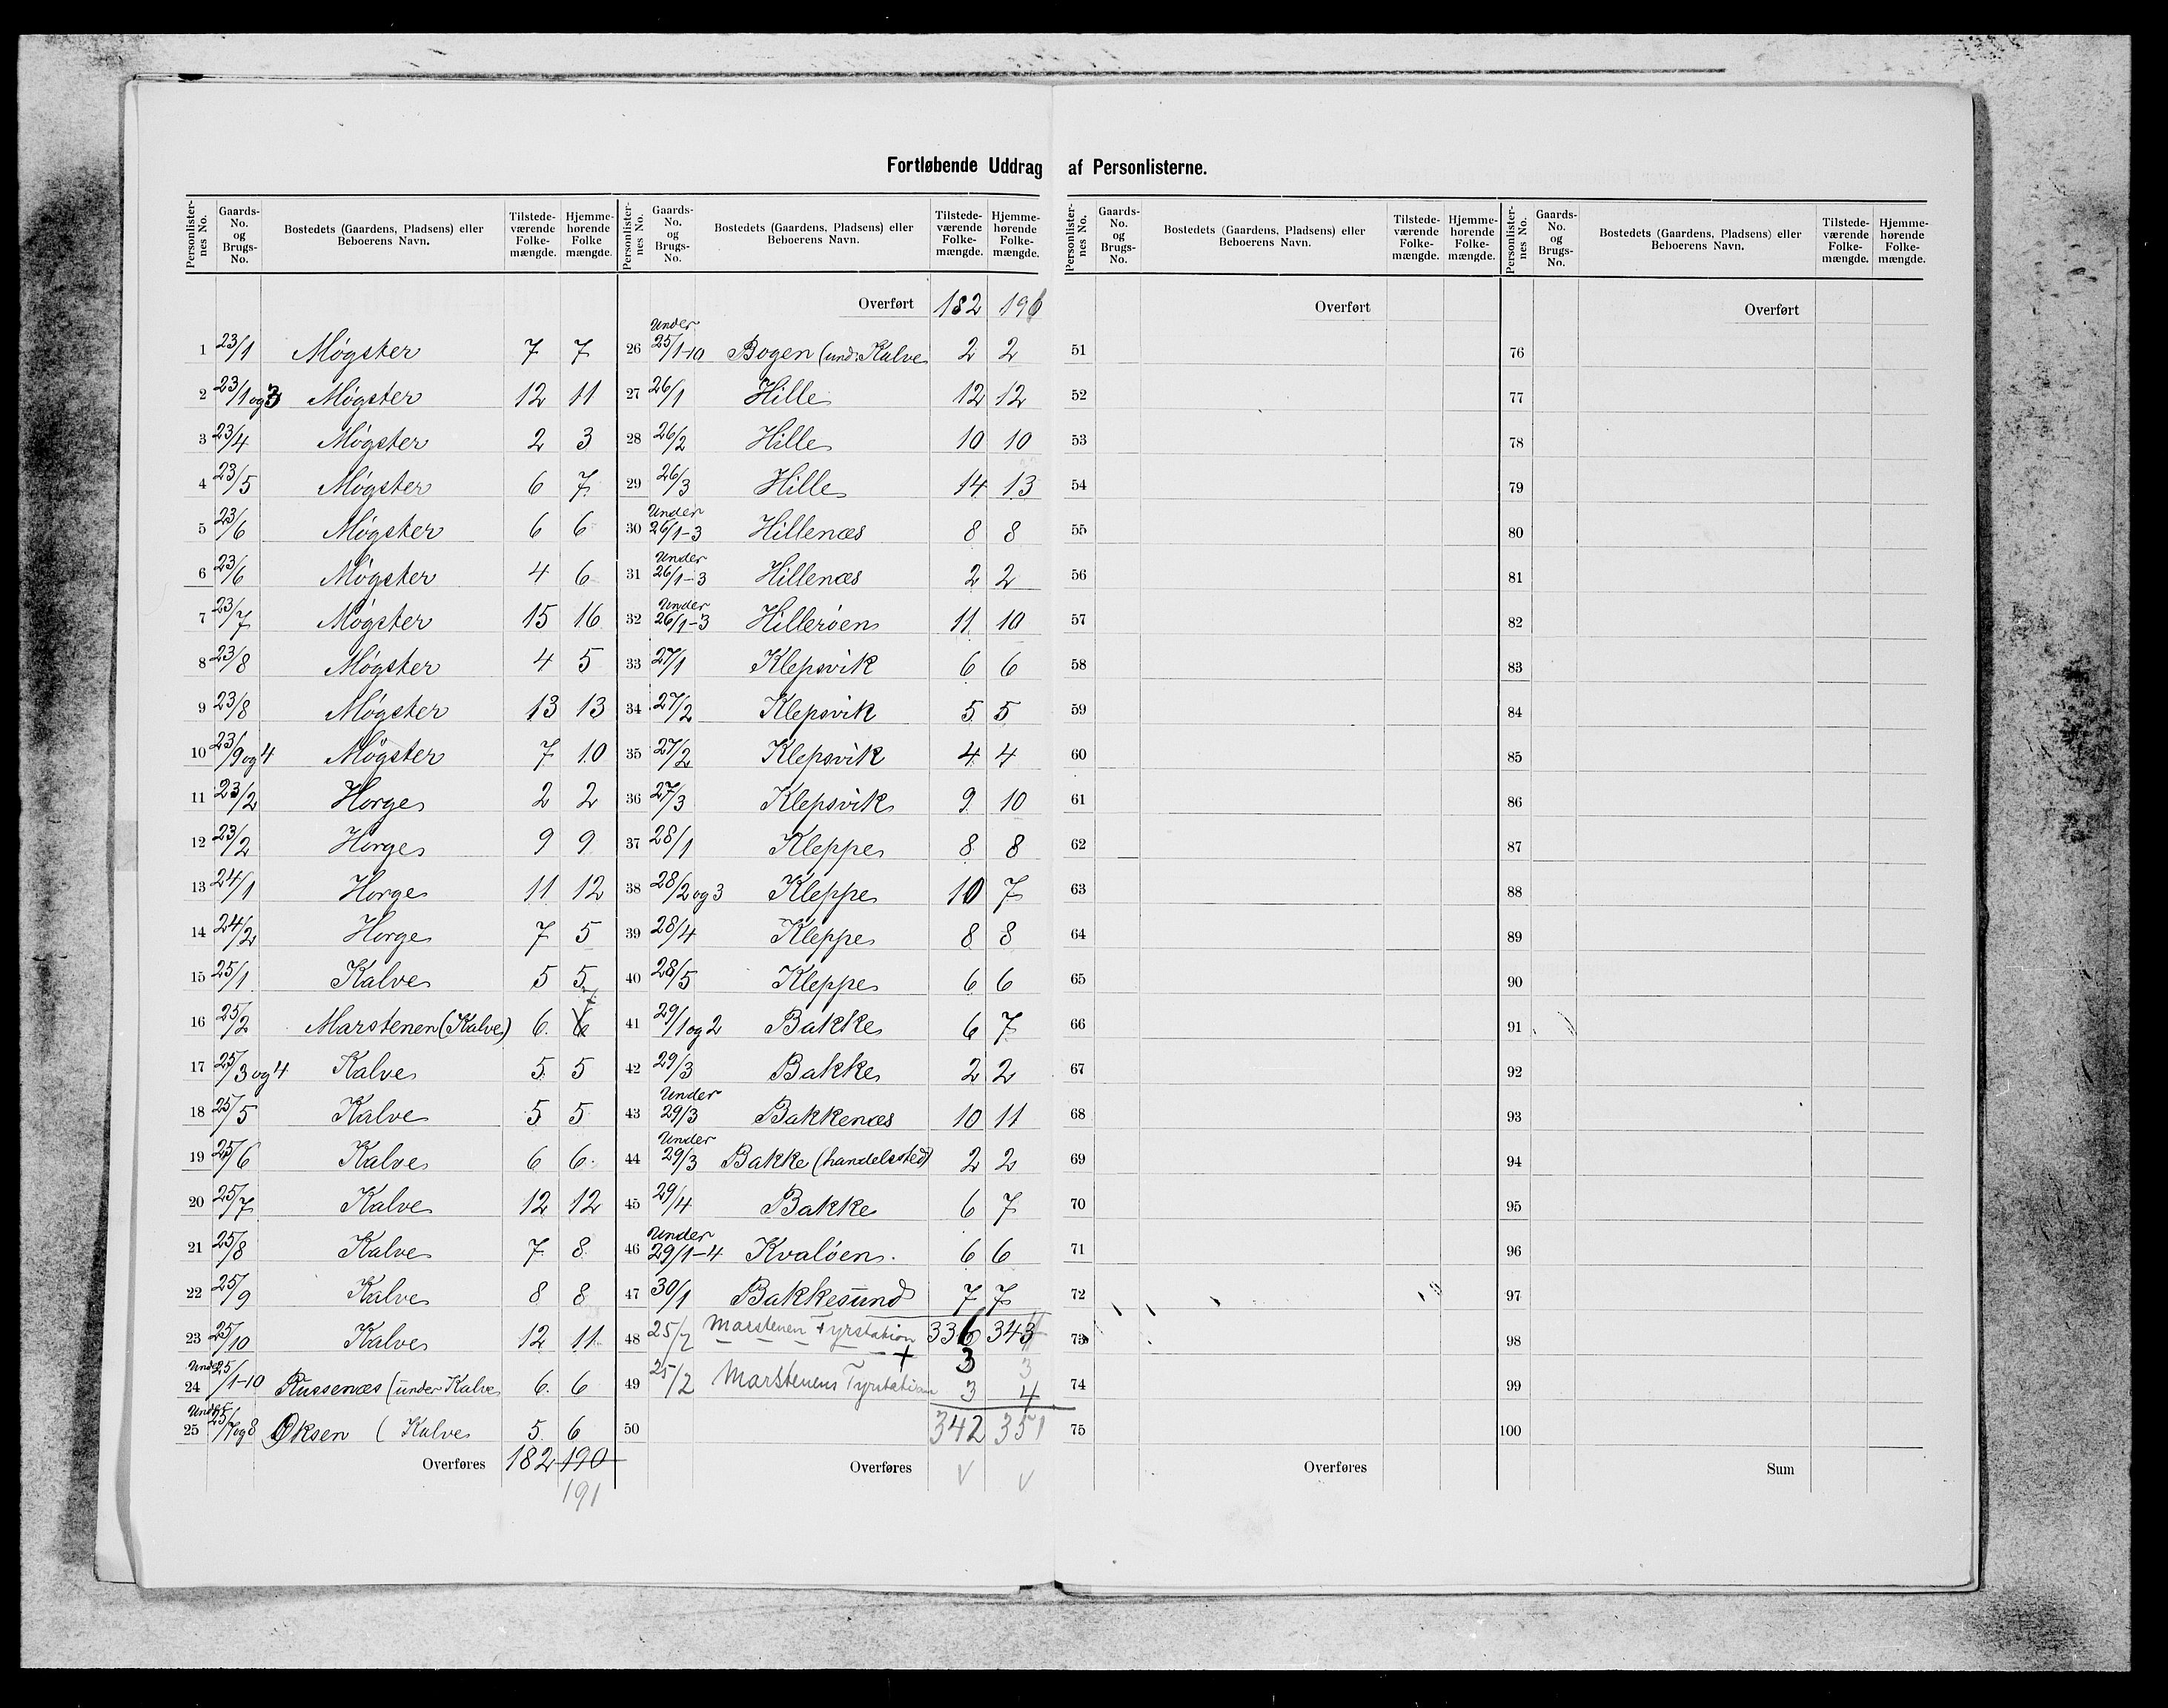 Fortløbende Uddrag af Personlisterne.
Personlister-nes No. | Gaards-No. og Brugs-No. | Bostedets (Gaardens, Pladsens) eller Beboerens Navn. | Tilstede-værende Folke-mængde. | Hjemme-hørende Folke mængde.
1 23/1 Møgster 7 7
2 23/1 og 3 Møgster 12 11
3 23/4 Møgster 2 3
4 23/5 Møgster 6 7
5 23/6 Møgster 6 6
6 23/6 Møgster 4 6
7 23/7 Møgster 15 16
8 23/8 Møgster 4 5
9 23/8 Møgster 13 13
10 23/9 og 4 Møgster 7 10
11 23/2 Horge 2 2
12 23/2 Horge 9 9
13 24/1 Horge 11 12
14 24/2 Horge 7 5
15 25/1 Kalve 5 5
16 25/2 Marstenen (Kalve) 6 6 7
17 25/3 og 4 Kalve 5 5
18 25/5 Kalve 5 5
19 25/6 Kalve 6 6
20 25/7 Kalve 12 12
21 25/8 Kalve 7 8
22 25/9 Kalve 8 8
23 25/10 Kalve 12 11
24 Under 25/1-10 Russenæs (under Kalve 6 6
25 Under 25/7 og 8 Øksen ( Kalve 5 6
Overføres 182 190
191
Personlister-nes No. | Gaards-No. og Brugs-No. | Bostedets (Gaardens, Pladsens) eller Beboerens Navn. | Tilstede-værende Folke-mængde. | Hjemme-hørende Folke-mængde.
Overført 182 191
26 Under 25/1-10 Bogen (und: Kalve 2 2
27 26/1 Hille 12 12
28 26/2 Hille 10 10
29 26/3 Hille 14 13
30 Under 26/1-3 Hillenæs 8 8
31 Under 26/1-3 Hillenæs 2 2
32 Under 26/1-3 Hillerøen 11 10
33 27/1 Klepsvik 6 6
34 27/2 Klepsvik 5 5
35 27/2 Klepsvik 4 4
36 27/3 Klepsvik 9 10
37 28/1 Kleppe 8 8
38 28/2 og 3 Kleppe 10 7
39 28/4 Kleppe 8 8
40 28/5 Kleppe 6 6
41 29/1 og 2 Bakke 6 7
42 29/3 Bakke 2 2
43 Under 29/3 Bakkenæs 10 11
44 Under 29/3 Bakke (handelssted) 2 2
45 29/4 Bakke 6 7
46 Under 29/1-4 Kvaløen. 6 6
47 30/1 Bakkesund 7 7
336 343
48 25/2 Marstenen Fyrstation + 3 3
49 25/2 Marstenens Fyrstation 3 4
50 342 351
Overføres v v
Personlister-nes No. | Gaards-No. og Brugs-No. | Bostedets (Gaardens, Pladsens) eller Beboerens Navn. | Tilstede-værende Folke-mængde. | Hjemme-hørende Folke-mængde.
Overført
51
52
53
54
55
56
57
58
59
60
61
62
63
64
65
66
67
68
69
70
71
72
73
74
75
Overføres
Personlister-nes No. | Gaards-No. og Brugs-No. | Bostedets (Gaardens, Pladsens) eller Beboerens Navn. | Tilstede-værende Folke-mængde. | Hjemme-hørende Folke-mængde.
Overført
76
77
78
79
80
81
82
83
84
85
86
87
88
89
90
91
92
93
94
95
96
97
98
99
100
Sum